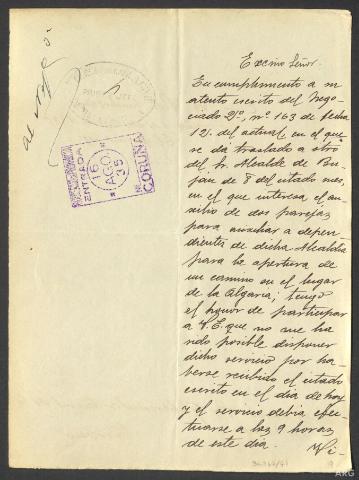 Excmo Señor.
En cumplimiento a su
atento escrito del Nego-
ciado 2º, nº 163 de fecha
12 del actual, en el que
se da traslado a otro
del Sr. Alcalde de Bu-
ján de 8 del citado mes,
en el que interesa el au-
xilio de dos parejas
para auxiliar a depen-
dientes de dicha Alcaldia
para la apertura de
un camino en el lugar
de la Algaria; tengo
el honor de participar
a V.E. que no me ha
sido posible disponer
dicho servicio por ha-
berse recibido el citado
escrito en el dia de hoy
y el servicio debia efec-
tuarse a las 9 horas
de este dia.
ENTRADA
16 AGO 35
CORUÑA
ARG